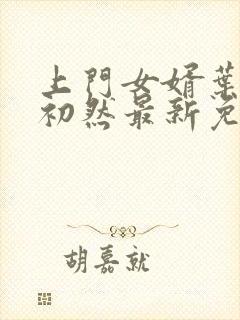 上門女婿葉
初然最新免
胡嘉就